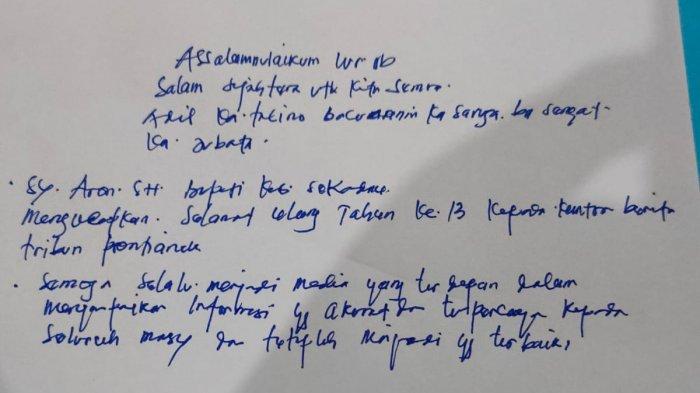 Assalamulaikum wr wb
Salam sejahtera utk kita semua.
Adil ka' talino bacuramin ka saruga. ba sengat
ka. jubata.
. Sy. Aron. SH. bupati kab. sekadau.
Mengucapkan. Selamat ulang Tahun ke. 13 kepada. kantor berita
tribun pontianak
. Semoga selalu. menjadi media yang ter depan dalam
menyampaikan Informasi yg akurat dan terpercaya kepada
seluruh masy dan tetaplah menjadi yg terbaik,